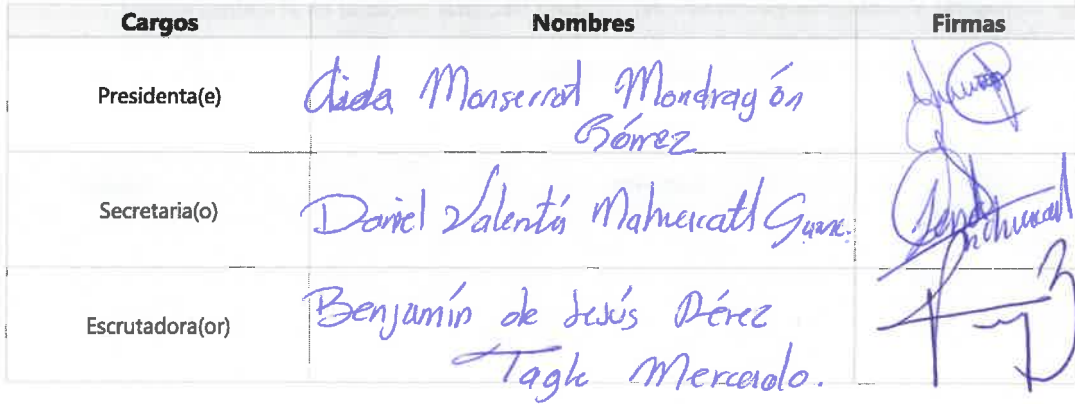 Cargos Nombres Firmas
Presidenta(e) Aida Monserrat Mondragón
Gómez
Secretaria(o) Daniel Valentín
Escrutadora(or) Benjamín de Jesús Pérez
Tagle Mercado.